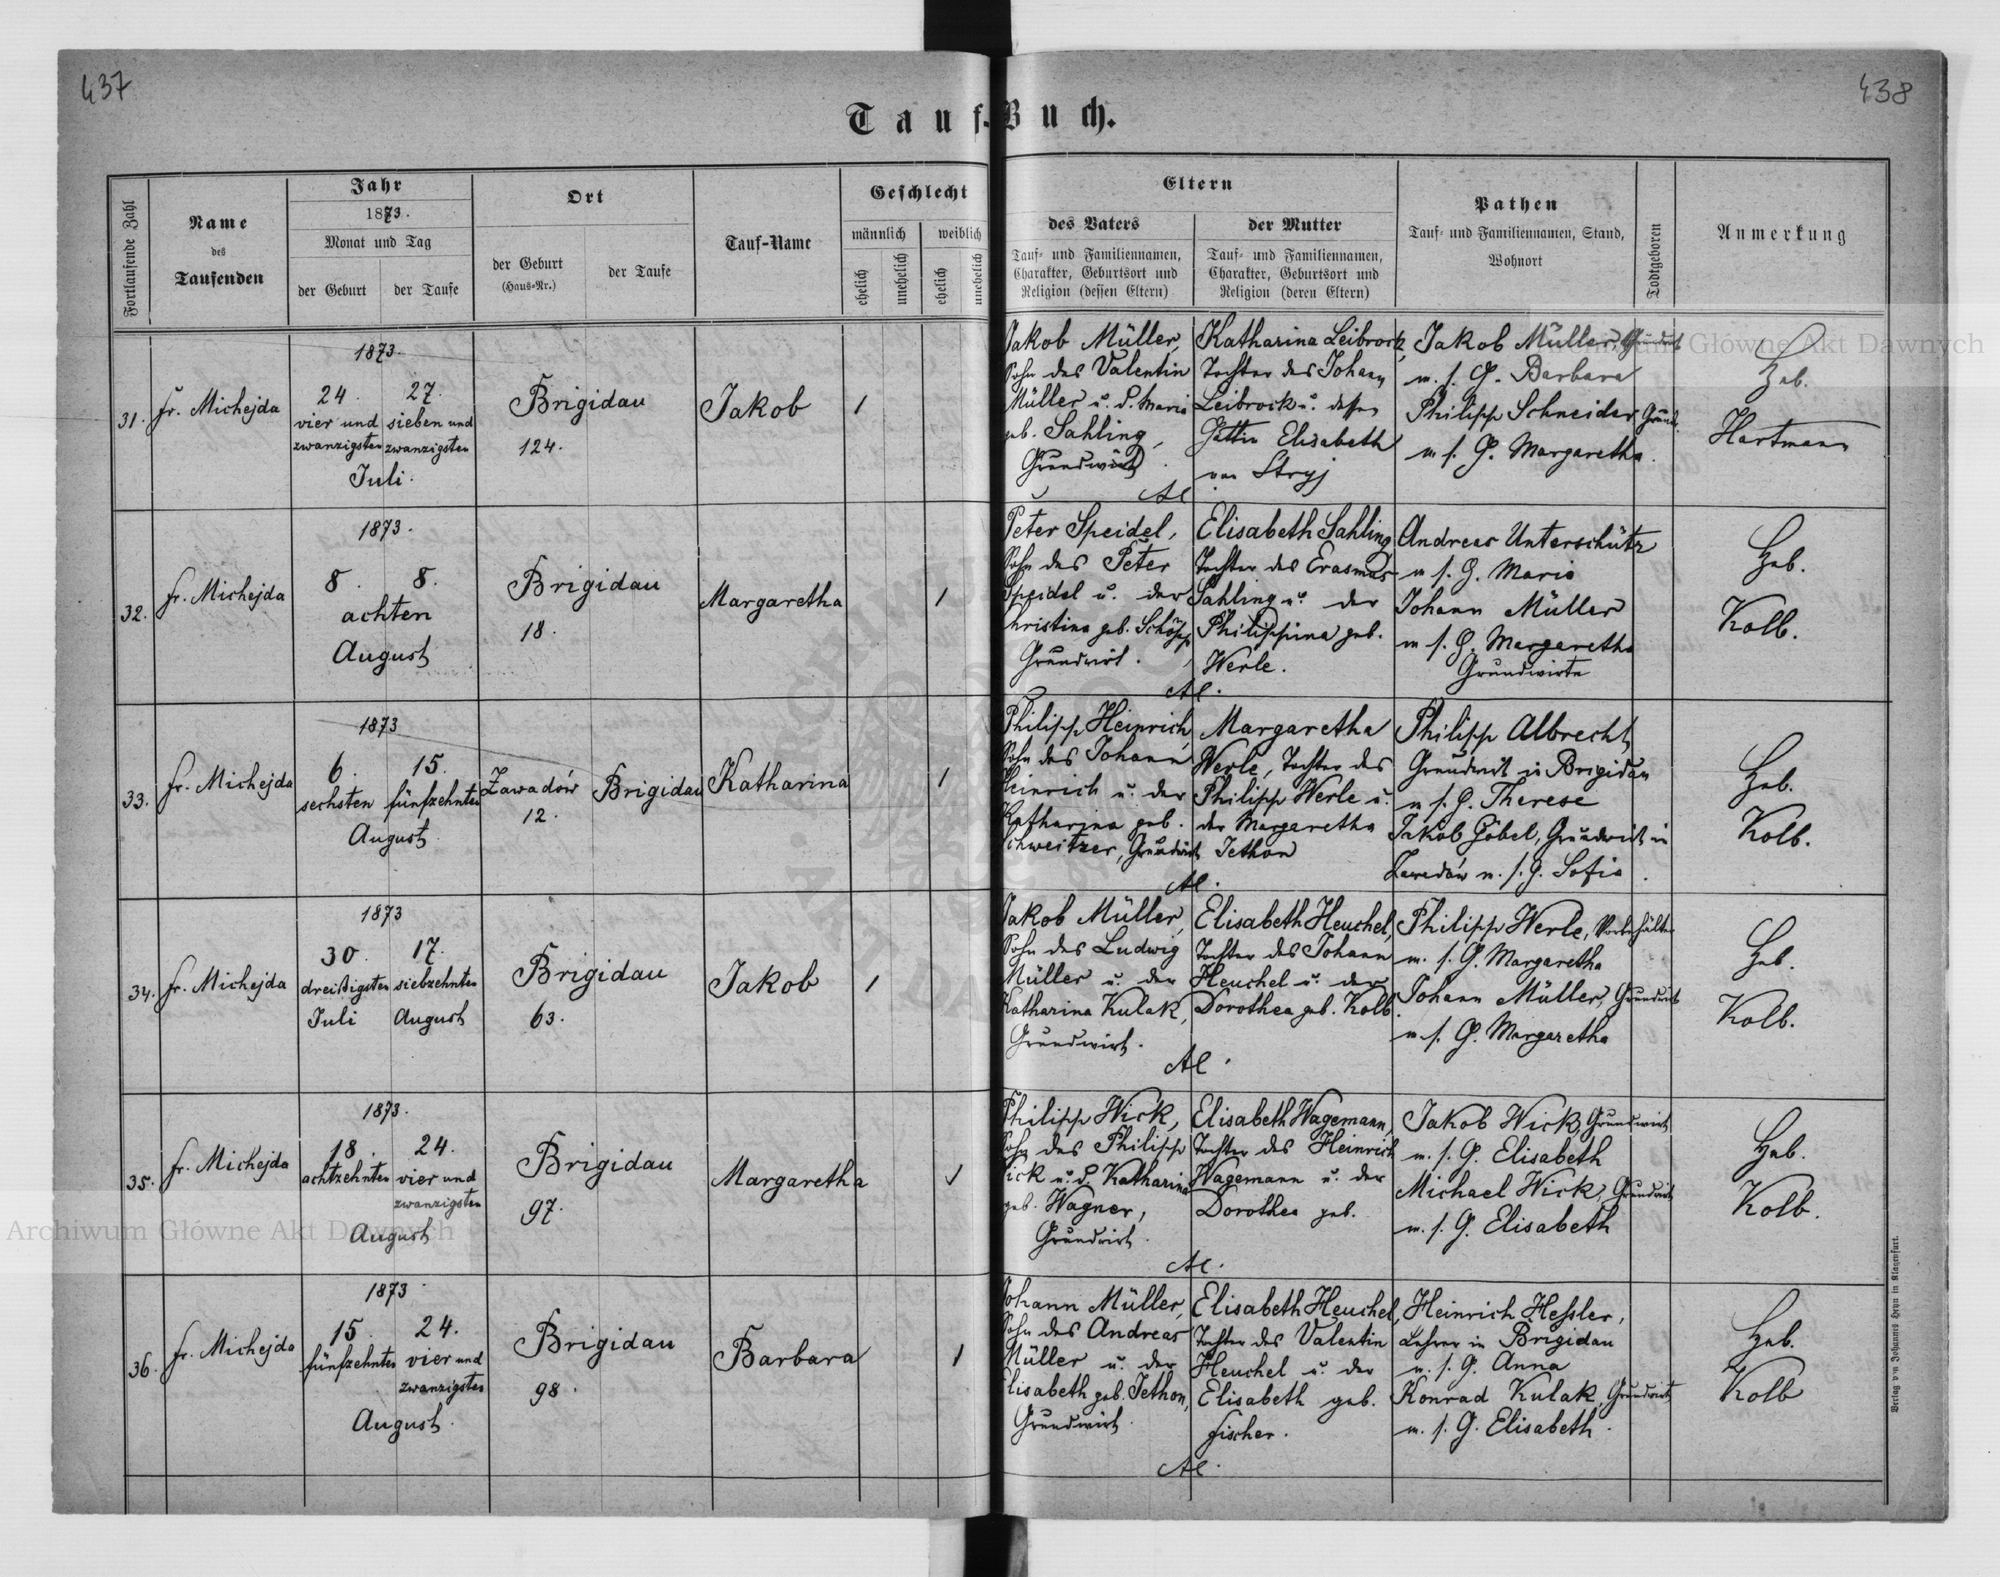 437
438
Tauf-Buch.
Fortlaufende Zahl
Name
des
Taufenden
Jahr
1873.
Monat und Tag
der Geburt
der Taufe
Ort
der Geburt
(Haus-Nr.)
der Taufe
Tauf-Name
Geschlecht
männlich
weiblich
ehelich
unehelich
ehelich
unehelich
Eltern
des Vaters
Tauf- und Familiennamen,
Charakter, Geburtsort und
Religion (dessen Eltern)
der Mutter
Tauf- und Familiennamen,
Charakter, Geburtsort und
Religion (deren Eltern)
Pathen
Tauf- und Familiennamen, Stand,
Wohnort
Todtgeboren
Anmerkung
31.
Fr. Michejda
1873.
24.
vier und
zwanzigsten
27.
sieben und
zwanzigsten
Juli.
Brigidau
124.
Jakob
1
Jakob Müller,
Sohn des Valentin
Müller u. d. Maria
geb. Sahling,
Grundwirt.
Katharina Leibrock,
Tochter des Johann
Leibrock u. dessen
Gattin Elisabeth
von Stryj
AC.
Jakob Müller, Grundwirt
m. s. G. Barbara
Philipp Schneider Grund.
m s. G. Margaretha.
Heb.
Hartmann
32.
Fr. Michejda
1873.
8.
8.
achten
August
Brigidau
18.
Margaretha
1
Peter Speidel,
Sohn des Peter
Speidel u. der
Christina geb. Schöpp,
Grundwirt.
Elisabeth Sahling
Tochter des Erasmus
Sahling u. der
Philippina geb.
Werle.
AC.
Andreas Unterschütz
m s. G. Maria
Johann Müller
m s. G. Margaretha
Grundwirte
Heb.
Kolb.
33.
Fr. Michejda
1873
6.
sechsten
15.
fünfzehnten
August.
Zawadów
12.
Brigidau
Katharina
1
Philipp Heinrich,
Sohn des Johann
Heinrich u. der
Katharina geb.
Schweitzer, Grundwirt
Margaretha
Werle, Tochter des
Philipp Werle u.
der Margaretha
Jethon
AC.
Philipp Albrecht,
Grundwirt in Brigidau
m s. G. Therese
Jakob Göbel, Grundwirt in
Zawadów m. s. G. Sofia.
Heb.
Kolb.
34.
Fr. Michejda
1873
30.
dreißigsten
Juli
17.
siebzehnten
August
Brigidau
63.
Jakob
1
Jakob Müller,
Sohn des Ludwig
Müller u. der
Katharina Kulak,
Grundwirt.
Elisabeth Heuchel,
Tochter des Johann
Heuchel u. der
Dorothea geb. Kolb.
AC.
Philipp Werle, Vorbehälter
m. s. G. Margaretha
Johann Müller, Grundwirt
m s. G. Margaretha
Heb.
Kolb.
35.
Fr. Michejda
1873.
18.
achtzehnten
24.
vier und
zwanzigsten
August
Brigidau
97.
Margaretha
1
Philipp Wick,
Sohn des Philipp
Wick u. d. Katharina
geb. Wagner,
Grundwirt.
Elisabeth Wagemann,
Tochter des Heinrich
Wagemann u. der
Dorothea geb.
AC.
Jakob Wick, Grundwirt
m. s. G. Elisabeth
Michael Wick, Grundwirt
m. s. G. Elisabeth
Heb.
Kolb.
36.
Fr. Michejda
1873
15.
fünfzehnten
24.
vier und
zwanzigsten
August.
Brigidau
98.
Barbara
1
Johann Müller,
Sohn des Andreas
Müller u. der
Elisabeth geb. Jethon,
Grundwirt.
Elisabeth Heuchel,
Tochter des Valentin
Heuchel u. der
Elisabeth geb.
Fischer.
AC.
Heinrich Hessler,
Lehrer in Brigidau
m. s. G. Anna
Konrad Kulak, Grundwirt
m. s. G. Elisabeth.
Heb.
Kolb
Verlag von Johannes Heyn in Klagenfurt.
Archiwum Główne Akt Dawnych
Archiwum Główne Akt Dawnych